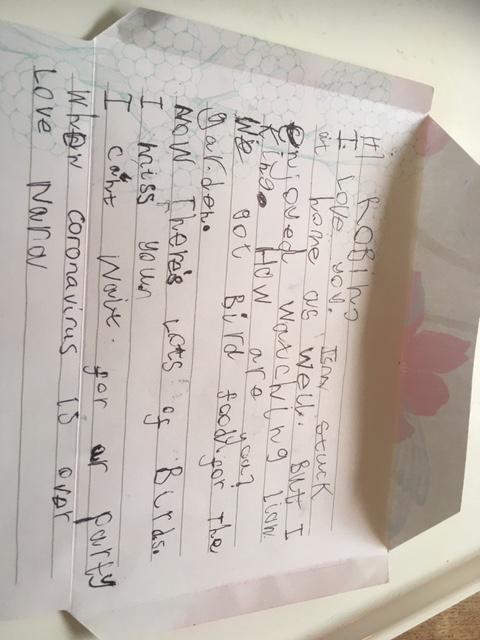 Hi RoBing
I Love you. Iem stuck
at home as well. But I
enjoyed watching Lion
King. How are you?
We got Bird food for the
garden.
Now There's Lots of Birds.
I miss you
I can't wait. for ar party
When coronavirus is over
Love Nana